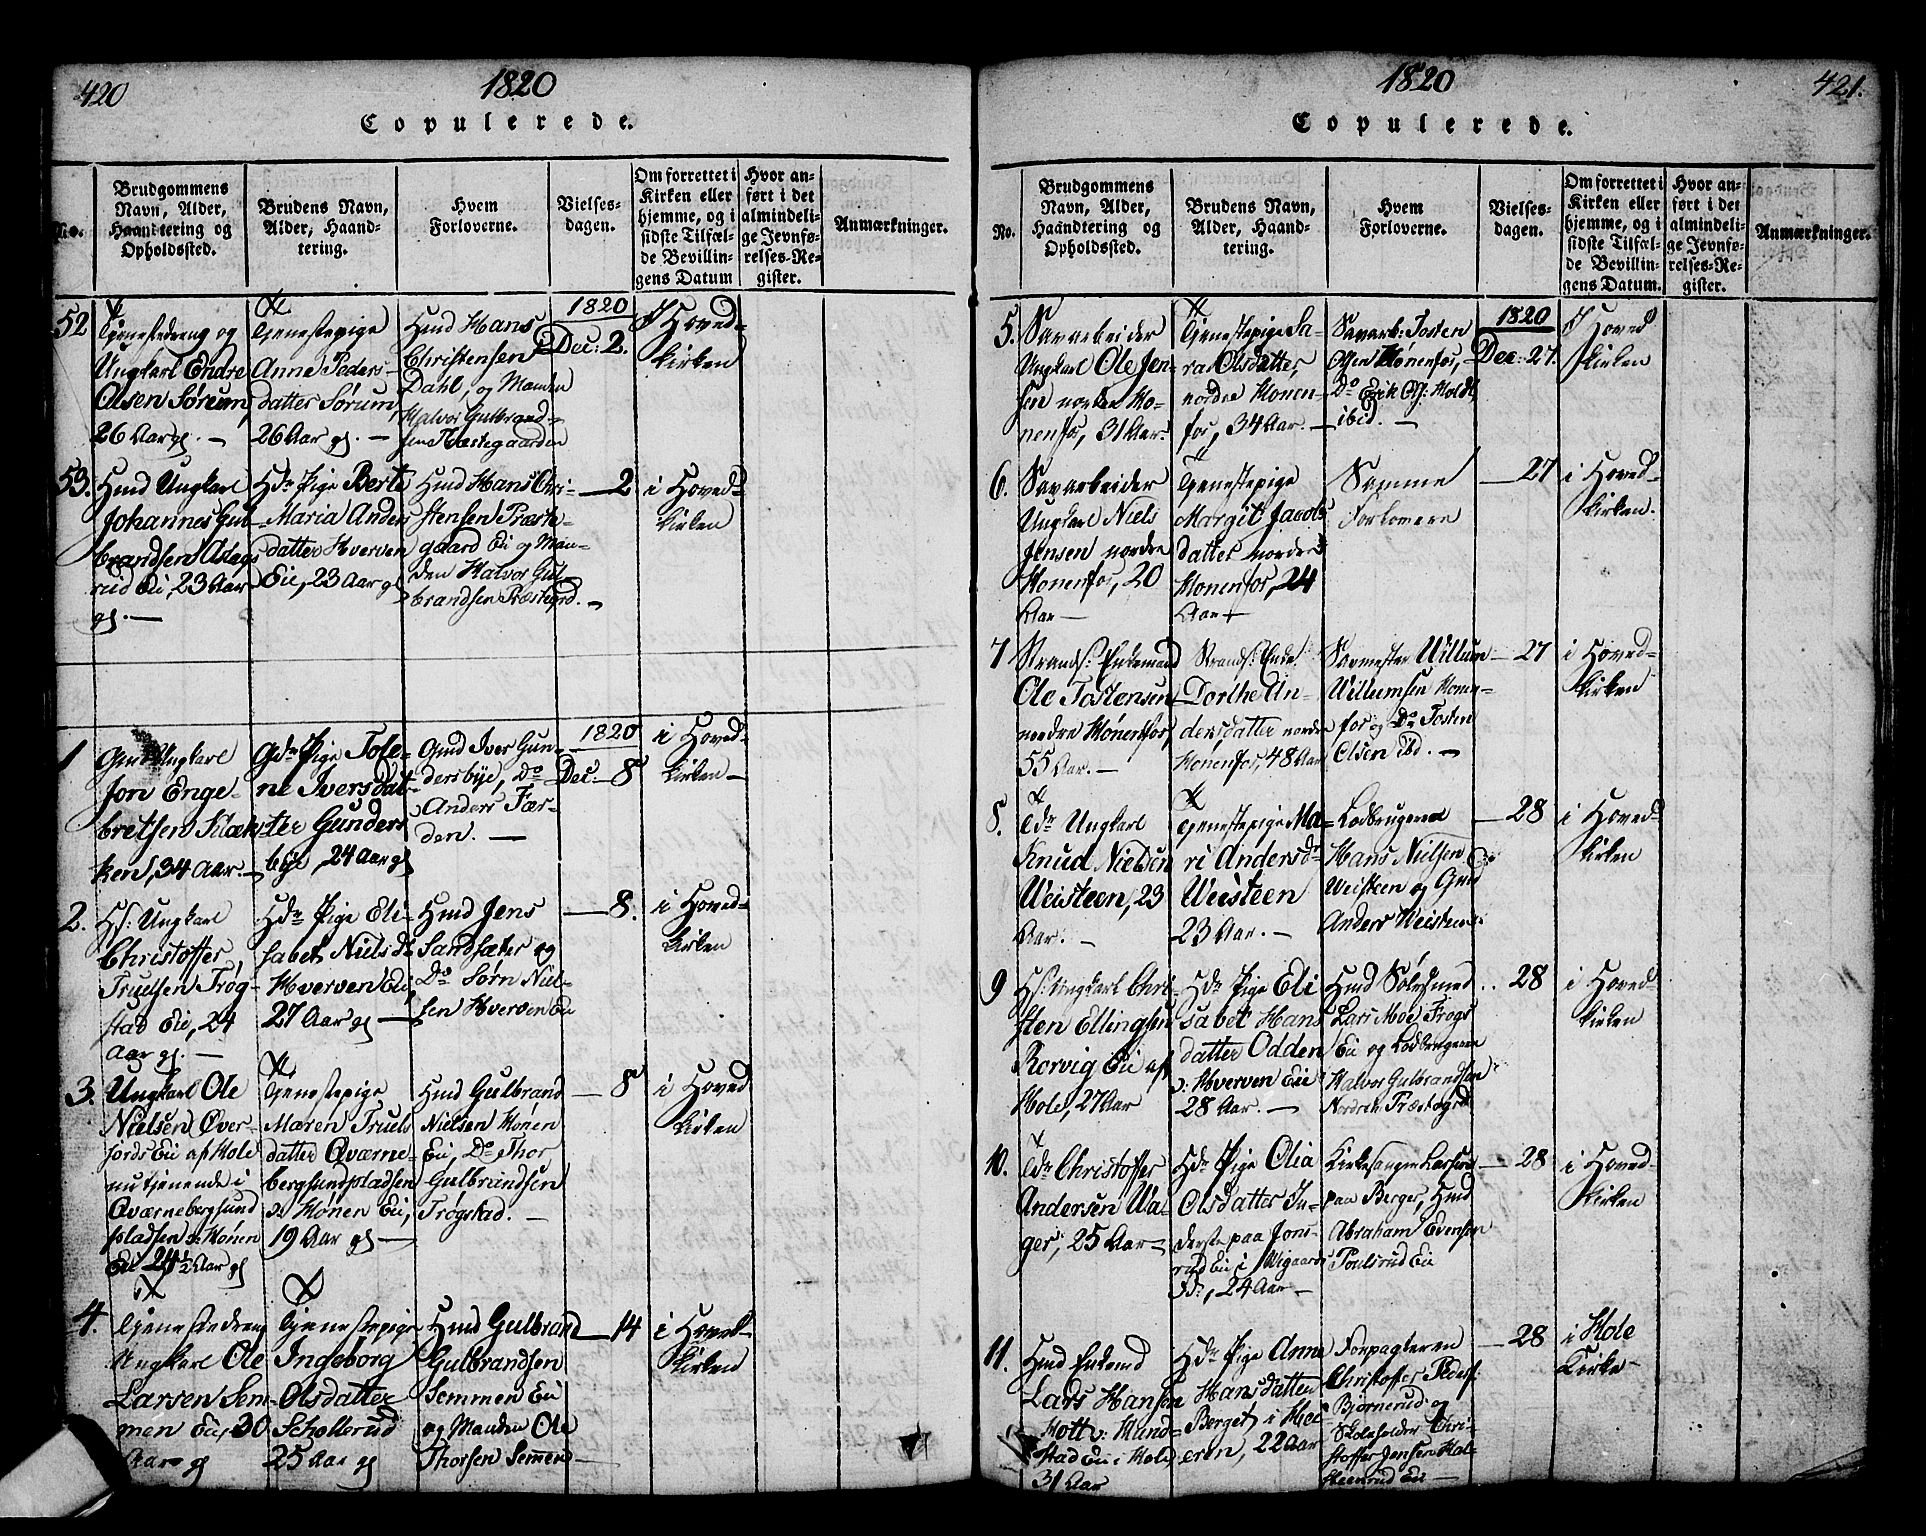 420
1820
Copulerede.
No.
Brudgommens
Navn, Alder,
Haandtering og
Opholdssted.
Brudens Navn,
Alder, Haand-
tering.
Hvem
Forloverne.
Vielses-
dagen.
Om forrettet i
Kirken eller
hjemme, og i
sidste Tilfæl-
de Bevillin-
gens Datum
Hvor an-
ført i det
almindeli-
ge Jevnfø-
relses-Re-
gister.
Anmærkninger.
52
Tjenestedreng og
Ungkarl Endre
Olsen Sørum,
26 Aar gl. —
Tjenestepige
Anne Peders-
datter Sørum,
26 Aar gl. —
Hmd Hans
Christensen
Dahl, og Manden
Halvor Gulbrand-
sen Præstegaarden
1820
Dec: 2.
i Hoved-
kirken
53.
Hmd Ungkarl
Johannes Gul-
brandsen Aslags-
rud Eie, 23 Aar
gl. —
Hdr Pige Berte
Maria Anders
datter Hverven
Eie, 23 Aar gl
Hmd Hans Chri-
stensen Præste-
gaard Eie og Man-
den Halvor Gul-
brandsen Præstegrd. —
— 2
i Hoved-
kirken
1
Gmd Ungkarl
Jon Enge-
bretsen
ken, 34 Aar. —
Gdr Pige Tole-
ne Iversdat-
ter Gunders
bye, 24 Aar gl
Gmd Iver Gun-
dersbye, Do
Anders Fær-
den. —
1820
Dec: 8
i Hoved-
kirken —
2.
Hs: Ungkarl
Christoffer
Truelsen Trøg-
stad Eie, 24
Aar gl. —
Hdr Pige Eli-
sabet Niels D:
Hverven Eie,
27 Aar gl —
Hmd Jens
Sandsæter og
Do Sørn Niel-
sen Hverven Eie
— 8.
i Hoved-
kirken
3.
Ungkarl Ole
Nielsen Øver-
fords Eie af Hole
nu tjenende i
Qværnebergsund
pladsen u: Hønen
Eie 24½ Aar gl
Tjenestepige
Maren Truels
datter Qværne-
bergsundpladsen
u: Hønen Eie,
19 Aar gl —
Hmd Gulbrand
Nielsen Hønen
Eie, Do Thor
Gulbrandsen
Trøgstad. —
— 8
i Hoved
kirken
4.
Tjenestedreng
Ungkarl Ole
Larsen Sem-
men Eie, 30
Aar gl
Tjenestepige
Ingeborg
Olsdatter
Schollerud
25 Aar gl
Hmd Gulbrand
Gulbrandsen
Semmen Eie
og Manden Ole
Thorsen Semmen —
— 14
i Hoved-
kirken
1820
421.
Copulerede.
No.
Brudgommens
Navn, Alder,
Haandtering og
Opholdssted.
Brudens Navn,
Alder, Haand-
tering.
Hvem
Forloverne.
Vielses-
dagen.
Om forrettet i
Kirken eller
hjemme, og i
sidste Tilfæl-
de Bevillin-
gens Datum.
Hvor an-
ført i det
almindeli-
ge Jevnfø-
relses-Re-
gister.
Anmærkninger.
5.
Savarbeider
Ungkarl Ole Jen-
sen nordre Hø-
nenfos, 31 Aar.
Tjenestepige Sa-
ra Olsdatter,
nordre Hønen-
fos, 34 Aar. —
Savarb: Tosten
Olsen Hønenfos,
Do Erik Chr: Holdt
ibid. —
1820
Dec: 27.
i Hoved
kirken
6.
Savarbeider
Ungkarl Niels
Jensen nordre
Hønenfos, 20
Aar —
Tjenestepige
Margit Jacobs
datter nordre
Hønenfos, 24
Aar
Samme
Forlovere
— 27
i Hoved-
kirken.
7
Strands: Enkemand
Ole Tostensen
nordre Hønenfos,
55 Aar. —
Strands: Enke
Dorthe An-
dersdatter nordre
Hønenfos, 48 Aar
Savmester Willum
Willumsen Hønen-
fos og Do Tosten
Olsen ibd. —
— 27
i Hoved-
kirken
8.
Tdr Ungkarl
Knud Nielsen
Weisteen, 23
Aar. —
Tjenestepige Ma-
ri Andersd:
Weisteen
23 Aar. —
Lodbrugeren
Hans Nielsen
Weisteen og Gmd
Anders Weisteen
— 28
i Hoved-
kirken
9
Hs: Ungkarl Chri-
sten Ellingsen
Rorvig Eie af
Hole, 27 Aar
Hdr Pige Eli
sabet Hans
datter Odden
u: Hverven Eie
28 Aar. —
Hmd
Lars Moe Trøgs
Eie og Lodbrugeren
Halvor Gulbrandsen
Nordre Præstegrd
28
i Hoved-
kirken
10.
Tdr Christoffer
Andersen Ua-
ger, 25 Aar —
Hdr Pige Olia
Olsdatter In-
derste paa Jons-
rud Eie i Wigaards
Fd:, 24 Aar —
Kirkesanger Larsen
paa Berger, Hmd
Abraham Evensen
Poulsrud Eie
— 28
i Hoved-
kirken
11.
Hmd Enkemd
Lars Hansen
Hott u: Mund-
stad Eie i Hole,
31 Aar
Hdr Pige Anne
Hansdatter
Berget i Mod-
eren, 22 Aar
Forpagteren
Christoffer Peders:
Bjørnerud og
Skoleholder Chri-
stoffer Jensen Hol-
steenrud Eie —
— 28
i Hole
Kirke —